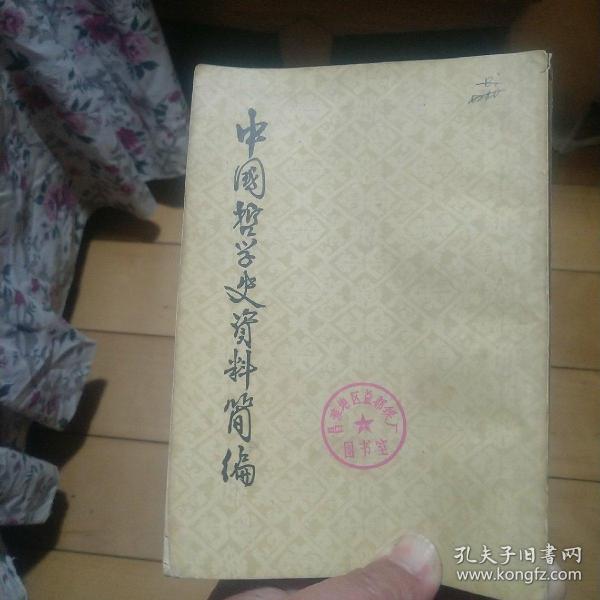 中國哲学史資料简编
昌潍地区益都线厂
图书室
孔夫子旧书网
www.kongfz.com